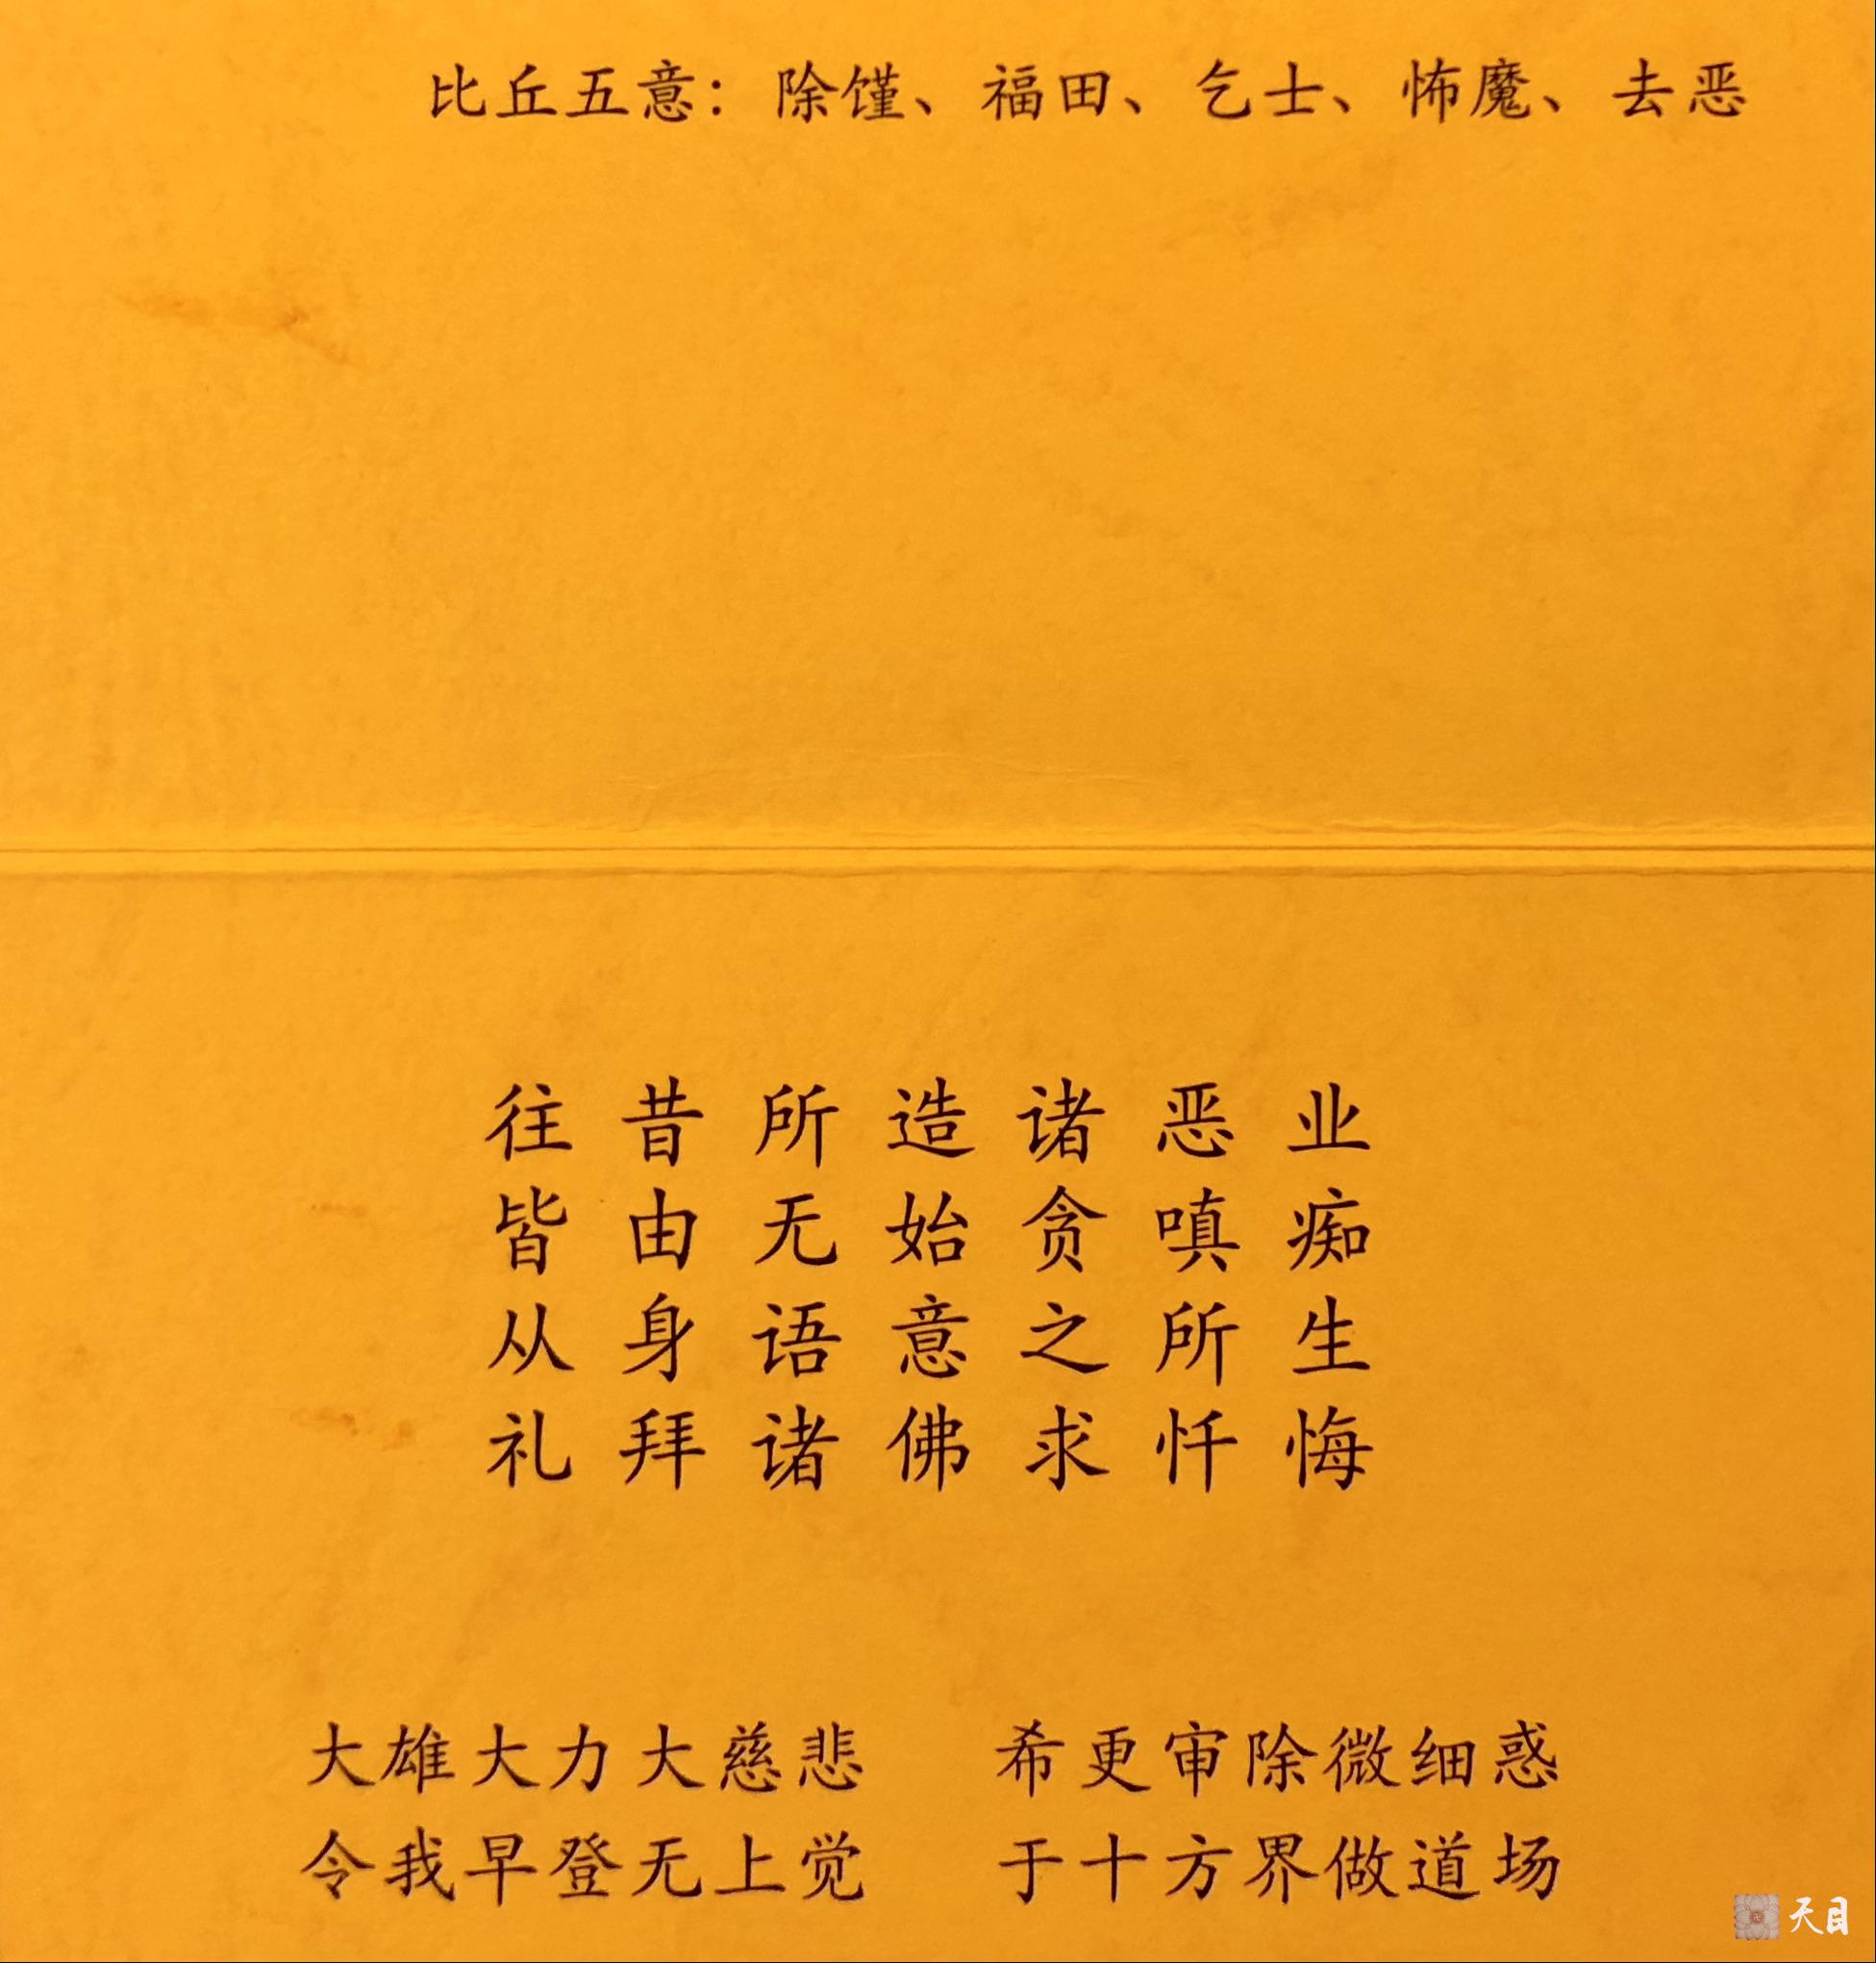 比丘五意：除馑、福田、乞士、怖魔、去恶
往昔所造诸恶业
皆由无始贪嗔痴
从身语意之所生
礼拜诸佛求忏悔
大雄大力大慈悲 希更审除微细惑
令我早登无上觉 于十方界做道场
天目